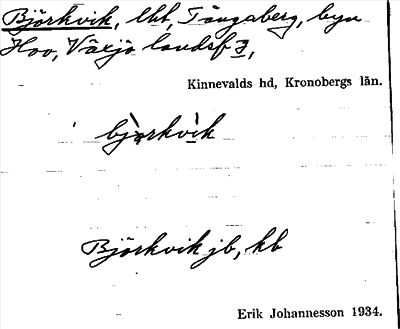 Björkvik, lht, Tångaberg, byn
Hov, Växjö landsf 3,
Kinnevalds hd, Kronobergs län.
bjòrkvìk
Björkvik jb, kb
Erik Johannesson 1934.